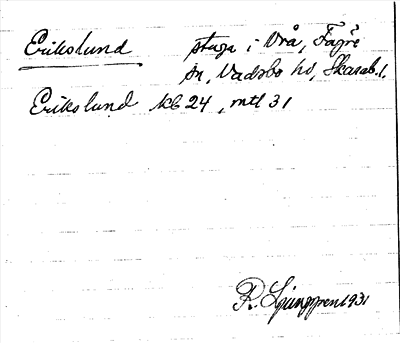 Erikslund stuga i Vrå, Fägre
sn, Vadsbo hd, Skarab. l.
Erikslund kb 24, mtl 31
R. Ljunggren 1931